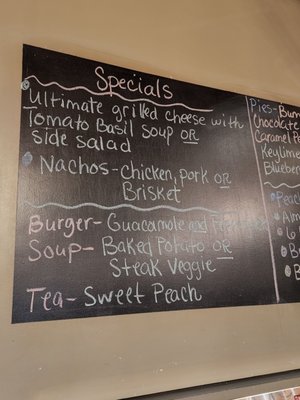 Specials
Ultimate grilled cheese with
Tomato Basil Soup OR
side salad
Nachos-chicken, pork OR
Brisket
Burger- Guacamole and
Soup- Baked Potato OR
Steak Veggie
Tea- Sweet Peach
Pies-
Chocolate
Caramel
Keylime
Blueber
Peach